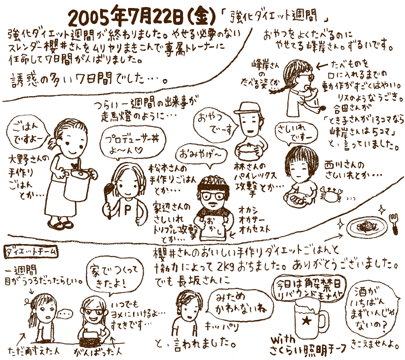 2005年7月22日(金)「強化ダイエット週間」
強化ダイエット週間が終わりました。やせる必要のない
スレンダー櫻井さんをムリヤリまきこんで専属トレーナーに
任命して7日間がんばりました。
誘惑の多い7日間でした…。
おやつをよくたべるのに
やせてる峰岸さん。ずるいです。
峰岸さん
のたべる姿が
たべものを
口に入れるまでの
動作がすごくはやい。
リスのようなうごき。
今田さんが
「とき子さんが13コマなら
峰岸さんは5コマ」
と言っていました。
つらい一週間の出来事が
走馬燈のように…
ごはん
ですよ〜
大野さんの
手作り
ごはん
とか…
プロデューサー丼
よ〜ん
松本さんの
手作りごはん
とか…
おやつ
でーす
林さんの
パイレックス
攻撃とか…
さしいれ
でーす
西川さんの
さしいれとか…
おみやげ〜
おかし
家辺さんの
さしいれ
トリプル攻撃
とか…
オカシ
オカサー
オカモスト
ダイエットチーム
一週間
目がうつろだったらしい。
ただ消えた人
がんばった人
家でつくって
きたよ!
いつでも
ヨメにいけるよ…
すてきです…
櫻井さんのおいしい手作りダイエットごはんと
によって2kgおちました。ありがとうございました。
でも長坂さんに
みため
かわんないね
キッパリ
と、言われました。
今日は解禁日
リバウンドモナイト
With
さくらい照明チーフ
酒が
いちばん
まずいんじゃ
ないの?
きこえませんよ。